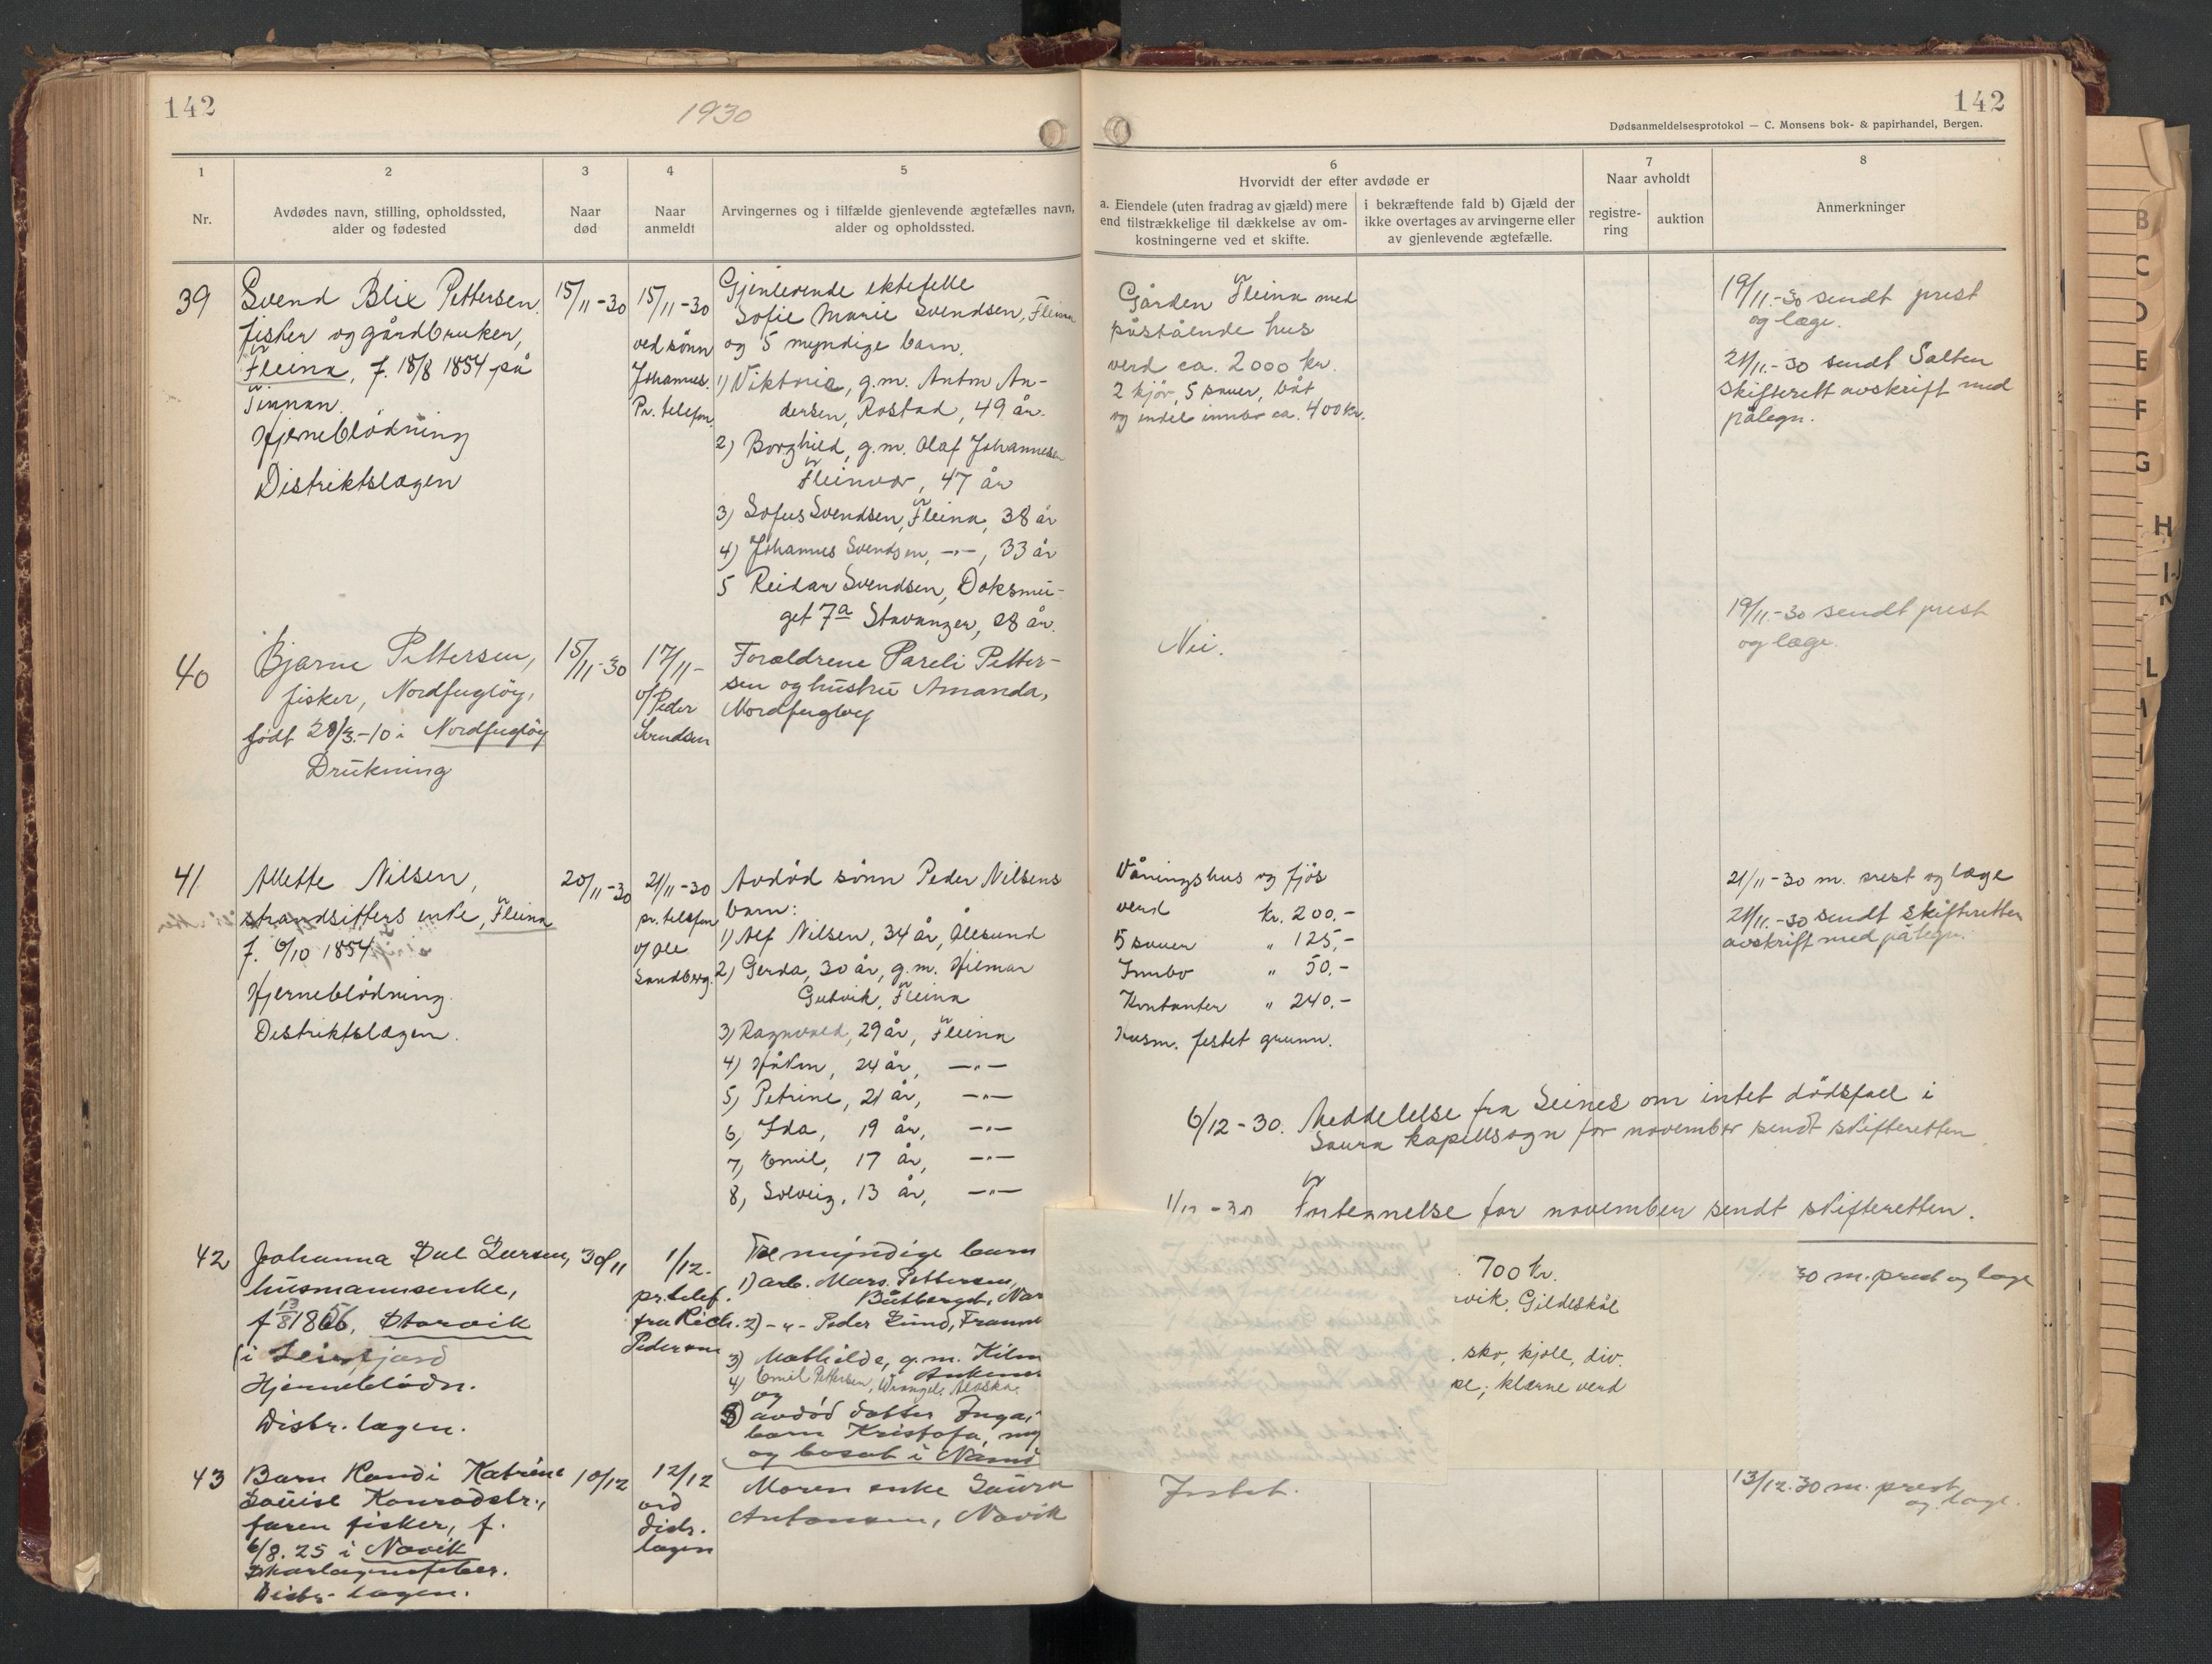 142
1930
142
Dødsanmeldelsesprotokol — C. Monsens bok- & papirhandel, Bergen.
1
Nr.
2
Avdødes navn, stilling, opholdssted,
alder og fødested
3
Naar
død
4
Naar
anmeldt
5
Arvingernes og i tilfælde gjenlevende ægtefælles navn,
alder og opholdssted.
6
Hvorvidt der efter avdøde er
a. Eiendele (uten fradrag av gjæld) mere
end tilstrækkelige til dækkelse av om-
kostningerne ved et skifte.
i bekræftende fald b) Gjæld der
ikke overtages av arvingerne eller
av gjenlevende ægtefælle.
7
Naar avholdt
registre-
ring
auktion
8
Anmerkninger
39
Svend Blix Pettersen.
fisker og gårdbruker,
Fleina, f. 18/8 1854 på
Tinnan.
Hjerneblödning
Distriktslægen
15/11-30
15/11-30
ved sönn
Johannes.
Pr. telefon.
Gjenlevende ektefelle
Sofie Marie Svendsen, Fleina
og 5 myndige barn.
1) Viktoria, g.m. Anton An-
dersen, Rostad, 49 år.
2) Borghild, g.m. Olaf Johannesen
Fleinvær, 47 år
3) Sofus Svendsen, Fleina, 38 år
4) Johannes Svendsen, -"-, 33 år
5 Reidar Svendsen, Doksmu-
get 7a Stavanger, 28 år.
Gården Fleina med
påstående hus
verd ca. 2000 kr.
2 kjör, 5 sauer, båt
og endel innbo ca. 400 kr.
19/11.-30 sendt prest
og læge.
21/11.-30 sendt Salten
skifterett avskrift med
påtegn.
40
Bjarne Pettersen,
fisker, Nordfuglöy,
född 28/3.-10 i Nordfuglöy
Drukning
15/11-30
17/11-
v/Peder
Svendsen
Foreldrene Pareli Petter-
sen og hustru Amanda,
Nordfugløy
Nei.
19/11.-30 sendt prest
og læge.
41
Allette Nilsen,
strandsitters enke, Fleina
f. 6/10 1854
Hjerneblödning.
Distriktslægen.
20/11-30
21/11-30
pr. telefon
v/Ole
Sandberg.
Avdöd sönn Peder Nilsens
barn:
1) Alf Nilsen, 34 år, Ålesund
2) Gerda, 30 år, g.m. Hilmar
Gutvik, Fleina
3) Ragnvald, 29 år, Fleina
4) Håkon, 24 år, -"-
5) Petrine, 21 år, -"-
6, Ida, 19 år, -"-
7, Emil, 17 år, -"-
8, Solveig, 13 år, -"-
Våningshus og fjös
verd kr. 200.-
5 sauer " 125,-
Innbo " 50.-
Kontanter " 240.-
Husm. festet grunn.
21/11-30 m. prest og læge
21/11.-30 sendt skifteretten
avskrift med påtegn.
6/12-30. Meddelelse fra Seines om intet dödsfall i
Saura kapellsogn for november sendt skifteretten.
1/12-30 Fortegnelse for november sendt skifteretten.
42
Johanna Dal Larsen,
husmannsenke,
f 13/8 1856, Storvik
i Leirfjord
Hjerneblödn.
Distr. lægen.
30/11
1/12.
pr. telef.
fra Rich.
Pedersen
Tre myndige barn
1) arb. Mars. Pettersen,
Båtberget, Nar
2) -"- Peder Lund, Fraun
3) Mathilde, g.m. Kilm
4) Emil Pettersen, Wrangel, Alaska.
og
5) avdöd datter Inga,
barn Kristofa, my
og bosat i Nams
700 kr.
vik, Gildeskål
. sko, kjole, div.
klærne verd
30 m. prest og læge
43
Barn Randi Katrine
Louise Konradstr.,
faren fisker, f.
6/8.25 i Novik
Skarlagensfeber.
Distr. lægen.
10/12
12/12
ved
distr.
lægen
Moren enke Laura
Antonsen, Novik
Intet.
13/12.30 m. prest
og læge.